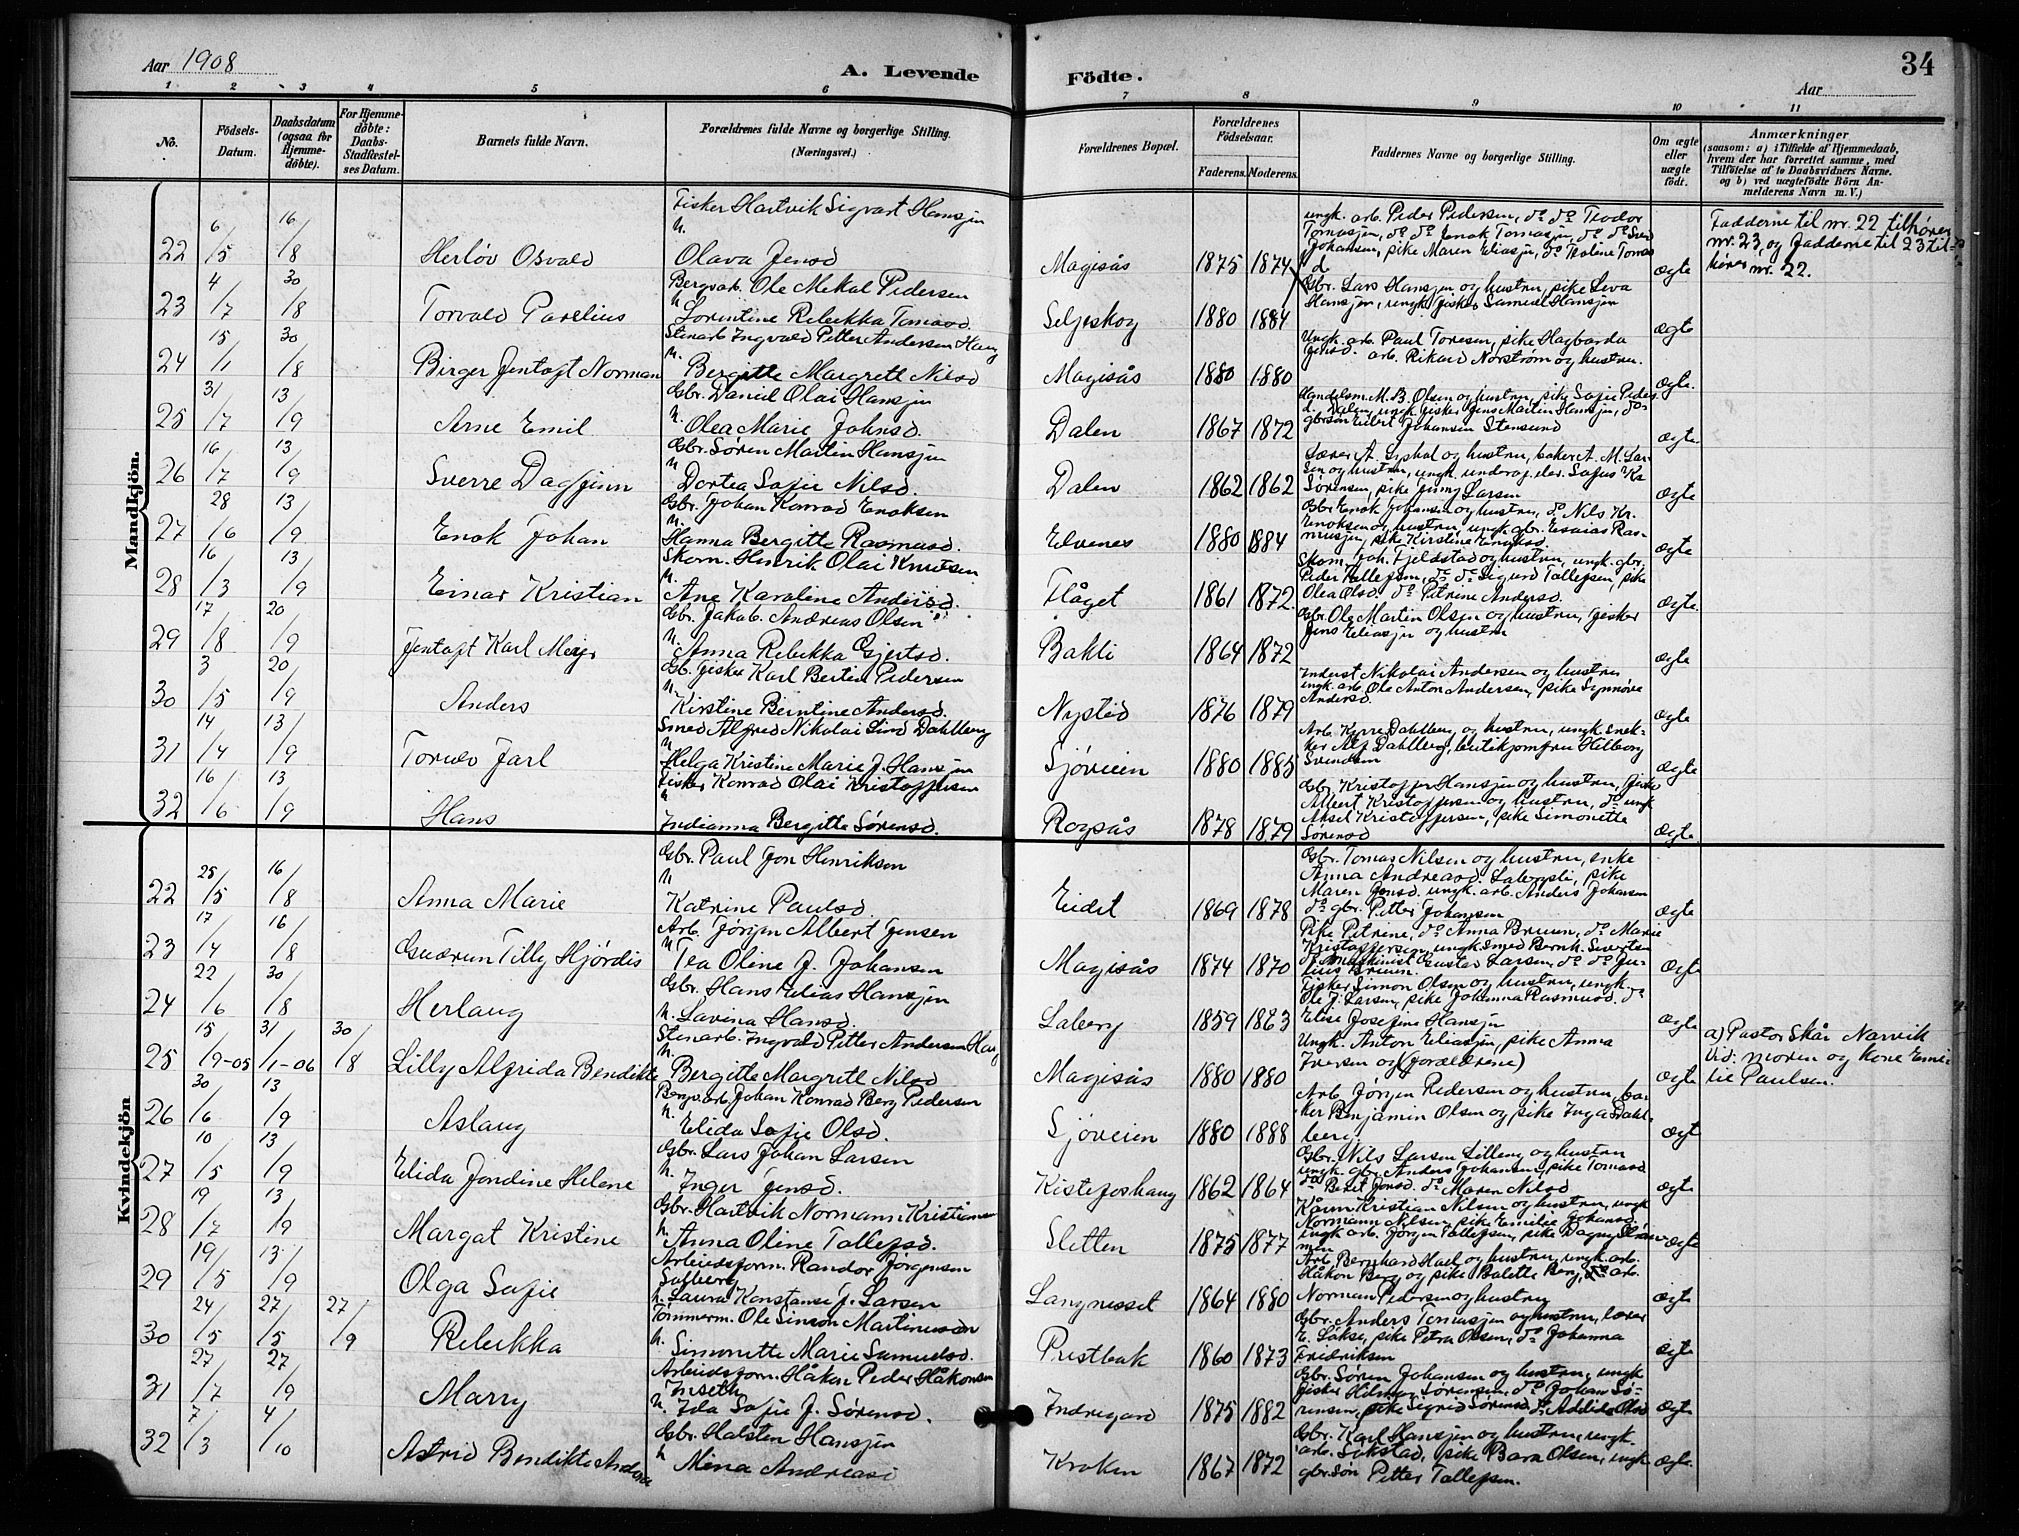 Aar 1908
A. Levende
Födte.
34
Aar
1 2 3 4 5 6 7 8 9 10 11
No.
Födsels-Datum.
Daabsdatum (ogsaa for Hjemmedöbte).
For Hjemmedöbte: Daabs-Stadfestelses Datum.
Barnets fulde Navn.
Forældrenes fulde Navne og borgerlige Stilling. (Næringsvei.)
Forældrenes Bopæl.
Forældrenes Födselsaar.
Faderens. Moderens.
Faddernes Navne og borgerlige Stilling.
Om ægte eller uægte födt.
Anmærkninger
(saasom: a) i Tilfælde af Hjemmedaab,
hvem der har forrettet samme, med
Tilföielse af to Daabsvidners Navne.
og b) ved uægtefödte Börn An-
melderens Navn m. V.)
Mandkjön.
22 6/5 16/8 Herløv Osvald
Fisker Hartvik Sigvart Hansjen
h. Olava Jensd
Magisås 1875 1874
ungk. arb. Peder Pedersen, do do Teodor
Tomasjen, do do Enok Tomasjen, do do Svend
Johansen, pike Maren Eliasjen, do Tealine Tomas
d
ægte
Fadderne til nr. 22 tilhører
nr. 23, og fadderne til 23 til-
hører nr. 22.
23 4/7 30/8 Torvald Parelius
Bergarb. Ole Mekal Pedersen
h. Lorentine Rebekka Tomasd.
Seljeskog 1880 1884
Gbr. Lars Hansjen og hustru, pike Leva
Hansjen, ungk. fisker Samuel Hansjen
ægte
24 15/1 30/8 Birger Jentoft Norman
Stenarb. Ingvald Petter Andersen Haug
h. Bergitte Margrete Nilsd
Magisås 1880 1880
Ungk. arb. Paul Toresen, pike Hagbarda
Jensd. arb. Rikard Norstrøm og hustru.
ægte.
25 31/7 13/9 Arne Emil
Gbr. Daniel Olai Hansjen
h. Olea Marie Johnsd.
Dalen 1867 1872
Handelsm. M. B. Olsen og hustru, pike Sofie Peders
d. Dalen, ungk. fisker Jens Martin Hansjen, do
gbrsøn Eilert Johansen Stensund
ægte.
26 16/7 13/9 Sverre Dagfinn
Gbr. Søren Martin Hansjen
h. Dortea Sofie Nilsd.
Dalen 1862 1862
Sørensen, pike Jenny Larsen
ægte
27 28/6 13/9 Enok Johan
Gbr. Johan Konrad Enoksen
h. Hanna Bergitte Rasmusd.
Elvenes 1880 1884
Gbr. Enok Johansen og hustru, do Nils Kr.
Enoksen og hustru, ungk. gbr. Esaias Ras-
musjen, pike Kirstine Enoksd.
ægte
28 16/3 13/9 Einar Kristian
Skom. Henrik Olai Knutsen
h. Ane Karoline Andersd.
Flåget 1861 1872.
Skom. Joh. Fjeldstad og hustru, ungk. gbr.
Peder Tollefsen, do do Sigurd Tollefsen, pike
Olea Olsd. do Petrine Andersd.
ægte
29 17/8 20/9 Jentoft Karl Meyer
Gbr. Jakob Andreas Olsen
h. Anna Rebekka Gjertsd.
Bakli 1864 1872
Gbr. Ole Martin Olsen og hustru, fisker
Jens Eliasjen og hustru
ægte
30 3/5 20/9 Anders
Gb. fisker Karl Bertin Pedersen
h. Kirstine Berntine Andersd.
Nystid 1876 1879
Inderst Nikolai Andersen og hustru
ungk. arb. Ole Anton Andersen, pike Synnøve
Andersd.
ægte
31 14/4 13/9 Torulv Jarl
Smed Alfred Nikolai Lind Dahlberg
h. Helga Kristine Marie J. Hansjen
Sjøveien 1880 1885
Arb. Kyrre Dahlberg og hustru, ungk. snek-
ker Alf Dahlberg, butikjomfru Hilborg
Svendsen
ægte
32 16/6 13/9 Hans
Fisker Konrad Olai Kristoffersen
h. Indianna Bergitte Sørensd.
Rogsås 1878 1879
Gbr. Kristoffer Hansjen og hustru, fisker
Albert Kristoffersen og hustru, do ungk
Aksel Kristoffersen, pike Simonette
Sørensd
ægte
Kvindekjön
22 25/5 16/8 Anna Marie
Gbr. Paul Jon Henriksen
h. Katrine Paulsd.
Eidet 1869 1878
Gbr. Tomas Nilsen og hustru, enke
Anna Andreasd. Labergli, pike
Maren Jensd. ungk. arb. Anders Johansen
do gbr. Petter Johansen
ægte
23 17/4 16/8 Gudrun Tilly Hjørdis
Arb. Jørgen Albert Jensen
h. Tea Oline J. Johansen
Magisås 1874 1870
Pike Petrine, do Anna Bruun, do Marie
Kristoffersen, ungk. smed Bernh. Sivertsen
do maskinist Gustav Larsen, do do Ju-
lius Bruun.
ægte
24 22/6 30/8 Herlaug
Gbr. Hans Elias Hansjen
h. Lavina Hansd.
Laberg 1859 1863
Fisker Simon Olsen og hustru, ungk.
Ole J. Larsen, pike Johanna Rasmusd. do
Elise Josefine Hansjen
ægte
25 15/9-05 31/1-06 30/8 Lilly Alfrida Bendikte
Stenarb. Ingvald Petter Andersen Haug
h. Bergitte Margrete Nilsd
Magisås 1880 1880
Ungk. Anton Eliasjen, pike Anna
Iversen og (forældrene)
ægte
a) Pastor Skår Narvik
Vid: moren og kone Emi-
lie Paulsen.
26 30/6 13/9 Aslaug
Bergv. arb. Johan Konrad Berg Pedersen
h. Elida Sofie Olsd.
Sjøveien 1880 1888
Arb. Jørgen Pedersen og hustru, ba-
ker Benjamin Olsen og pike Inga Dahl-
berg.
ægte
27 10/5 13/9 Elida Jordine Helene
Gbr. Lars Johan Larsen
h. Inger Jensd.
Kistefoshaug 1862 1864
Gbr. Nils Larsen Lilleng og hustru
ungk. gbr. Anders Johansen, pike Tomasd
do Beret Jonsd. do Maren Nilsd
ægte
28 19/7 13/9 Margat Kristine
Gbr. Hartvik Normann Kristiansen
h. Anna Oline Tollefsd.
Sletten 1875 1877
Kårm. Kristian Nilsen og hustru, ungk
Normann Nilsen, pike Emilie Johansd.
ungk arb. Jørgen Tollefsen, pike Dagny
ægte
29 19/5 13/9 Olga Sofie
Arbeidsform. Randor Jørgensen
Solberg
h. Laura Konstanse J. Larsen
Langnesset 1864 1880
Arb. Bernhard Hael og hustru, ungk. arb.
Håkon Berg og pike Balette Berg, do arb.
Norman Pedersen og hustru
ægte
30 24/5 27/5 27/9 Rebekka
Tömmerm. Ole Simon Martinussen
h. Simonette Marie Samuelsd.
Prestbak 1860 1873
Gbr. Anders Tomasjen og hustru, lærer
E. Løkse, pike Petra Olsen, do Johanna
Fridriksen
ægte
31 27/7 27/9 Marry
Arbeidsform. Håkon Peder Håkonsen
Inseth
h. Ida Sofie J. Sørensd.
Indregard 1875 1882
Gbr. Søren Johansen og hustru, ungk
fisker Hilmar Sørensen, do Johan Sø-
rensen, pike Sigrid Sørensd. do Addida Olsd
ægte
32 7/3 4/10 Astrid Bendikte Andrea
Gbr. Halsten Hansjen
h. Mina Andreasd
Kroken 1867 1872
Gbr. Karl Hansjen og hustru, ungk.
arb. Sikstad, pike Bara Olsen, ungk
gbr.søn Petter Tollefsen.
ægte.